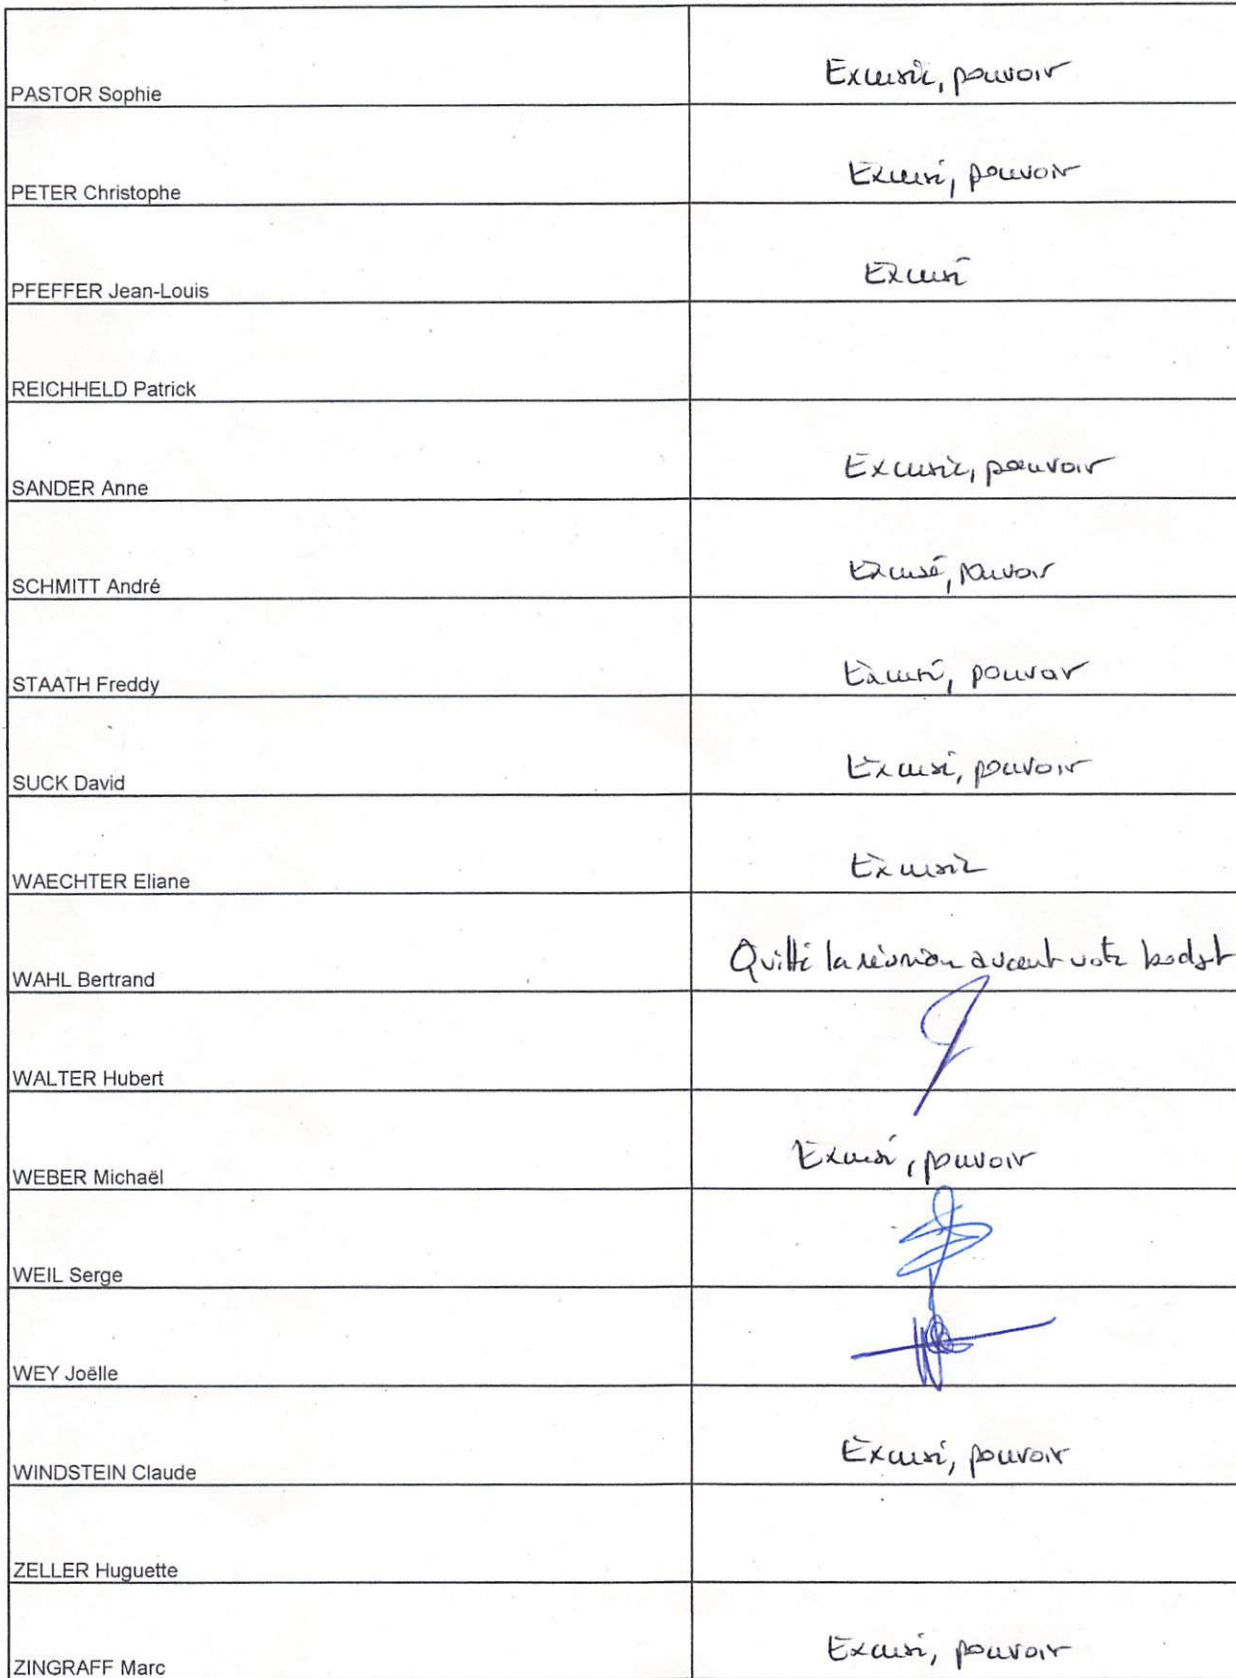 PASTOR Sophie Excusée, pouvoir
PETER Christophe Excusé, pouvoir
PFEFFER Jean-Louis Excusé
REICHHELD Patrick
SANDER Anne Excusée, pouvoir
SCHMITT André Excusé, pouvoir
STAATH Freddy Excusé, pouvoir
SUCK David Excusé, pouvoir
WAECHTER Eliane Excusée
WAHL Bertrand Quitté la réunion avant vote budget
WALTER Hubert
WEBER Michaël Excusé, pouvoir
WEIL Serge
WEY Joëlle
WINDSTEIN Claude Excusé, pouvoir
ZELLER Huguette
ZINGRAFF Marc Excusé, pouvoir